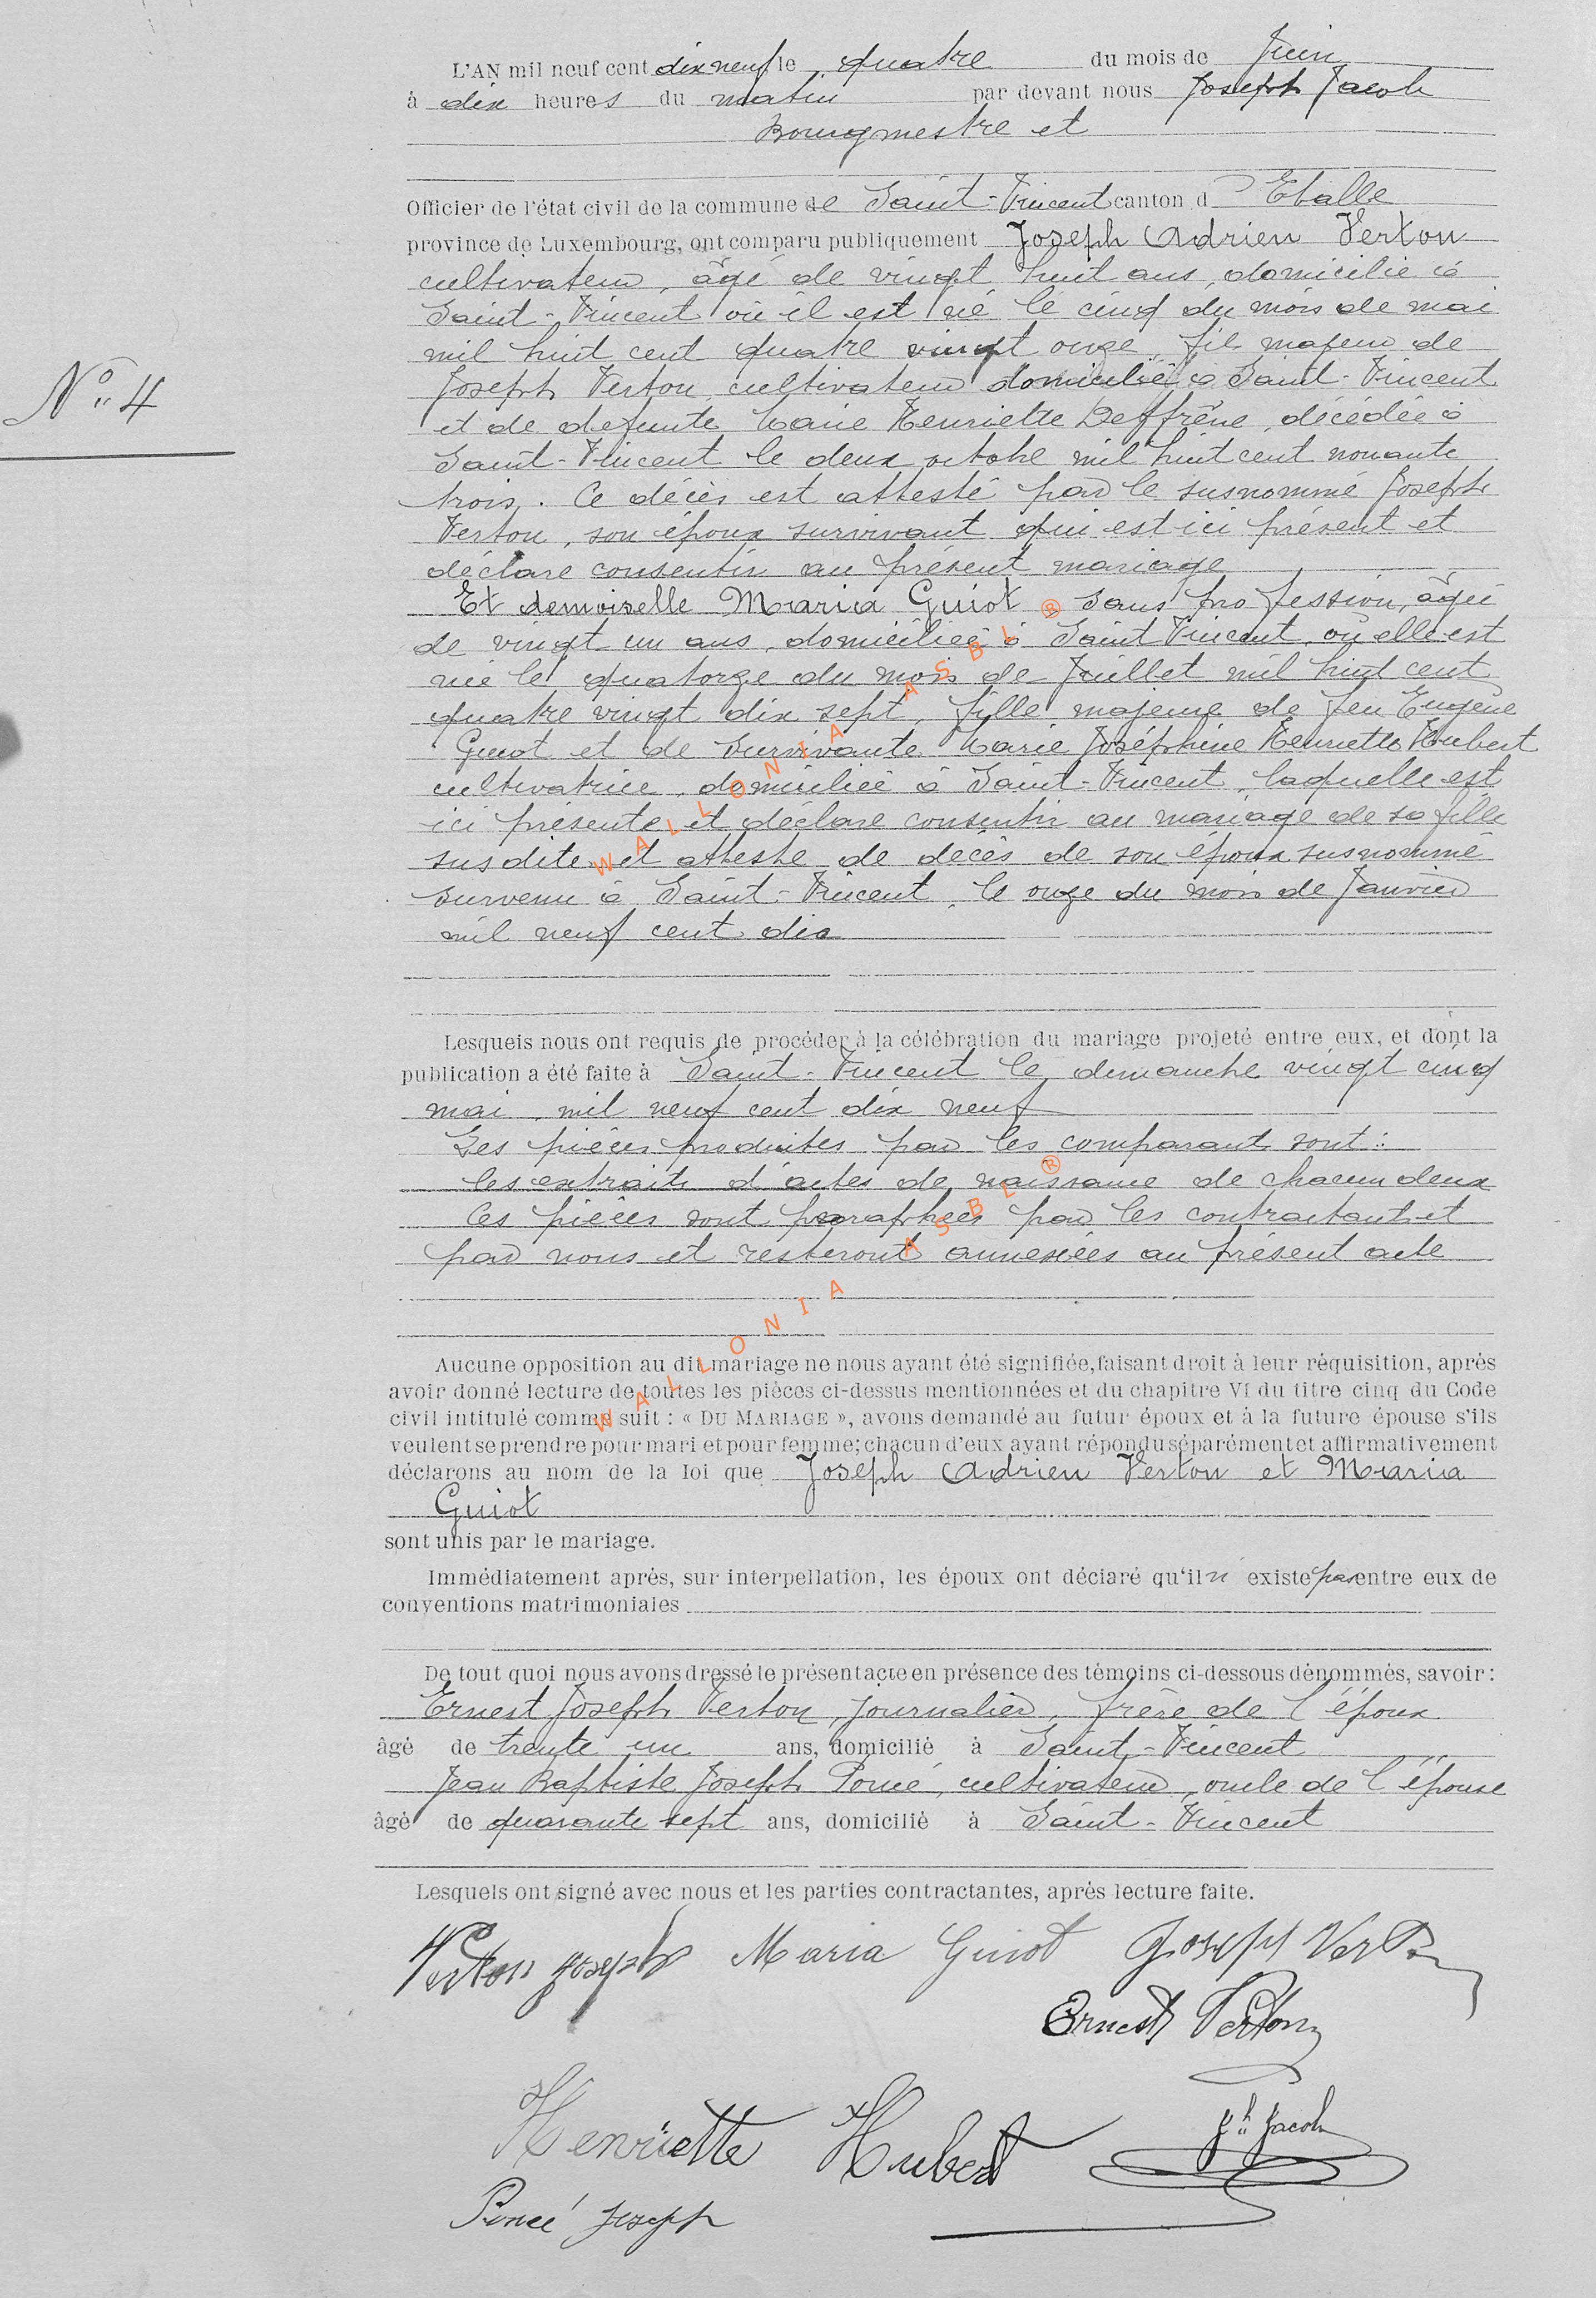 L'AN mil neuf cent dix neuf le quatre du mois de Juin
à dix heures du matin par devant nous Joseph Jacob
Bourgmestre et
Officier de l'état civil de la commune de Saint-Vincent canton d' Etalle
province de Luxembourg, ont comparu publiquement Joseph Adrien Verton
cultivateur, âgé de vingt huit ans, domicilié à
Saint-Vincent où il est né le cinq du mois de mai
mil huit cent quatre vingt onze, fils majeur de
Joseph Verton, cultivateur domicilié à Saint-Vincent
et de défunte Marie Henriette Deffrène, décédée à
Saint-Vincent le deux octobre mil huit cent nonante
trois. Ce décès est attesté par le susnommé Joseph
Verton, son époux survivant qui est ici présent et
déclare consentir au présent mariage
N° 4
Et demoiselle Maria Guiot sans profession, âgée
de vingt un ans, domiciliée à Saint Vincent, où elle est
née le quatorze du mois de Juillet mil huit cent
quatre vingt dix sept, fille majeure de feu Eugène
Guiot et de survivante Marie Joséphine Henriette Hubert
cultivatrice, domiciliée à Saint-Vincent, laquelle est
ici présente et déclare consentir au mariage de sa fille
susdite et atteste de décès de son époux susnommé
survenu à Saint-Vincent, le onze du mois de Janvier
mil neuf cent dix
WALLONIA ASBL ®
Lesquels nous ont requis de procéder à la célébration du mariage projeté entre eux, et dont la
publication a été faite à Saint-Vincent le dimanche vingt cinq
mai, mil neuf cent dix neuf
Les pièces produites par les comparants sont:
les extraits d'actes de naissance de chacun deux
Ces pièces sont paraphées par les contractants et
par nous et resteront annexées au présent acte
WALLONIA ASBL ®
Aucune opposition au dit mariage ne nous ayant été signifiée, faisant droit à leur réquisition, après
avoir donné lecture de toutes les pièces ci-dessus mentionnées et du chapitre VI du titre cinq du Code
civil intitulé comme suit : « DU MARIAGE », avons demandé au futur époux et à la future épouse s'ils
veulent se prendre pour mari et pour femme; chacun d'eux ayant répondu séparément et affirmativement
déclarons au nom de la loi que Joseph Adrien Verton et Maria
Guiot
sont unis par le mariage.
Immédiatement après, sur interpellation, les époux ont déclaré qu'il n' existe pas entre eux de
conventions matrimoniales
De tout quoi nous avons dressé le présent acte en présence des témoins ci-dessous dénommés, savoir :
Ernest Joseph Verton, journalier, frère de l'époux
âgé de trente un ans, domicilié à Saint-Vincent
Jean Baptiste Joseph Poncé, cultivateur, oncle de l'épouse
âgé de quarante sept ans, domicilié à Saint-Vincent
Lesquels ont signé avec nous et les parties contractantes, après lecture faite.
Verton Joseph Maria Guiot Joseph Verton
Ernest Verton
Henriette Hubert Jh Jacob
Poncé Joseph